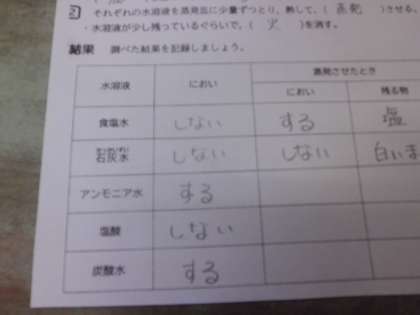 それぞれの水溶液を蒸発皿に少量ずつとり、熱して、( 蒸発 )させる。
・水溶液が少し残っているぐらいで、( 火 )を消す。
結果 調べた結果を記録しましょう。
水溶液 におい 蒸発させたとき
におい 残る物
食塩水 しない する 塩
石灰水 しない しない 白い
アンモニア水 する
塩酸 しない
炭酸水 する